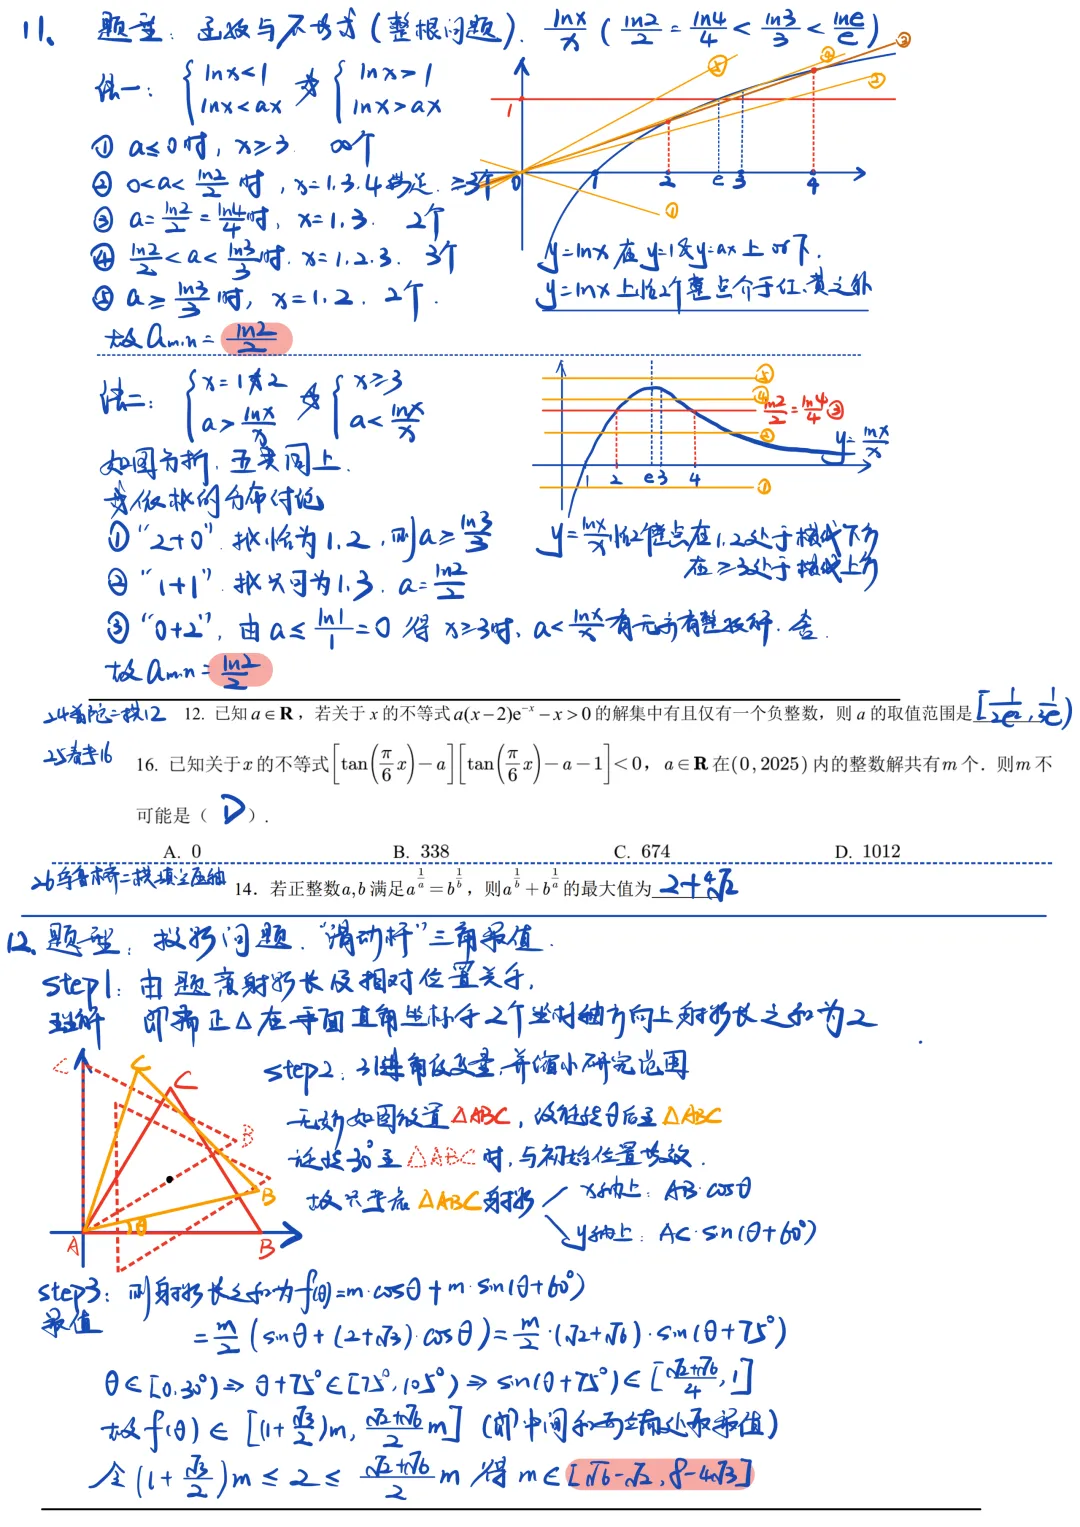 11. 题型：函数与不等式(整根问题). lnx/x (ln2/2 = ln4/4 < ln3/3 < lne/e)
法一： { lnx<1 lnx<ax 或 { lnx>1 lnx>ax
① a≤0时, x≥3. ∞个
② 0<a<ln2/2 时, x=1.3.4满足. ≥3个
③ a=ln2/2=ln4/4时, x=1.3. 2个
④ ln2/2<a<ln3/3时. x=1.2.3. 3个
⑤ a≥ln3/3时, x=1.2. 2个.
故 amin=ln2/2
y=lnx 在 y=1及y=ax上 or 下.
y=lnx上恰2个整点介于红、黄之外
1 0 1 2 e 3 4
① ② ③ ④ ⑤
法二： { x=1或2 a>lnx/x 或 { x≥3 a<lnx/x
如图分析, 五类同上.
或依根的分布讨论
① "2+0". 根恰为1.2, 则a≥ln3/3
② "1+1". 根只可为1.3. a=ln2/2
③ "0+2", 由a≤ln1/1=0 得 x≥3时, a<lnx/x有无穷有整数解. 舍.
故 amin=ln2/2
⑤
④
ln2/2=ln4/4 ③
②
y=lnx/x
1 2 e 3 4
①
y=lnx/x恰2个整点在1.2处于横线下方
在≥3处于横线上方
24普陀二模12 12. 已知a∈R，若关于x的不等式a(x−2)e^{−x}−x>0的解集中有且仅有一个负整数，则a的取值范围是[1/2e², 1/3e)
25春考16 16. 已知关于x的不等式[tan(π/6 x)−a][tan(π/6 x)−a−1]<0，a∈R在(0,2025)内的整数解共有m个．则m不
可能是（ D ）.
A. 0 B. 338 C. 674 D. 1012
14．若正整数a,b满足a^{1/a}=b^{1/b}，则a^{1/b}+b^{1/a}的最大值为 2+⁴√2
12. 题型：投影问题. "滑动杆"三角最值.
step1：由题意射影长及相对位置关系,
理解 即需正△在平面直角坐标系2个坐标轴方向上射影长之和为2
step2. 引进角度变量, 并缩小研究范围
无妨如图放置△ABC, 设旋转θ后至△ABC
旋转30°至△ABC时, 与初始位置等效.
故只考虑△ABC射影 x轴上: AB·cosθ
y轴上: AC·sin(θ+60°)
C C C
B
B
A θ B
step3：则射影长之和为f(θ)=m·cosθ+m·sin(θ+60°)
最值 =m/2(sinθ+(2+√3)·cosθ)=m/2·(√2+√6)·sin(θ+75°)
θ∈[0,30°)⇒θ+75°∈[75°,105°)⇒sin(θ+75°)∈[(√2+√6)/4,1]
故f(θ)∈[(1+√3/2)m, (√2+√6)/2 m] (即中间和两端处取最值)
令(1+√3/2)m≤2≤(√2+√6)/2 m 得m∈[√6−√2, 8−4√3]